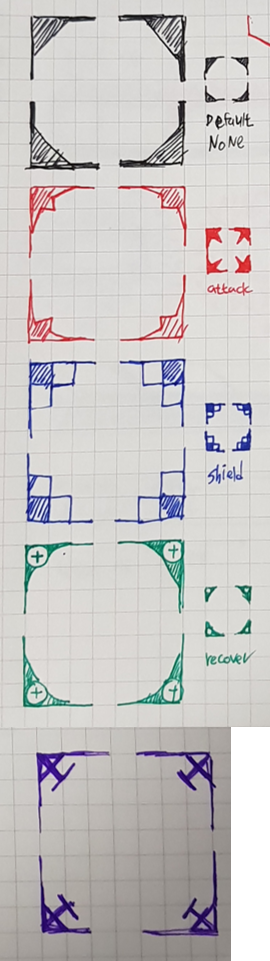 Default
NoNe
attack
shield
recover